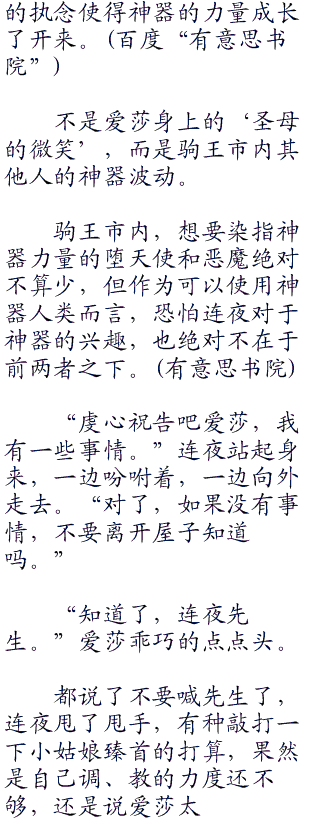 的执念使得神器的力量成长
了开来。(百度“有意思书
院”)
不是爱莎身上的‘圣母
的微笑’，而是驹王市内其
他人的神器波动。
驹王市内，想要染指神
器力量的堕天使和恶魔绝对
不算少，但作为可以使用神
器人类而言，恐怕连夜对于
神器的兴趣，也绝对不在于
前两者之下。(有意思书院)
“虔心祝告吧爱莎，我
有一些事情。”连夜站起身
来，一边吩咐着，一边向外
走去。“对了，如果没有事
情，不要离开屋子知道
吗。”
“知道了，连夜先
生。”爱莎乖巧的点点头。
都说了不要喊先生了，
连夜甩了甩手，有种敲打一
下小姑娘臻首的打算，果然
是自己调、教的力度还不
够，还是说爱莎太